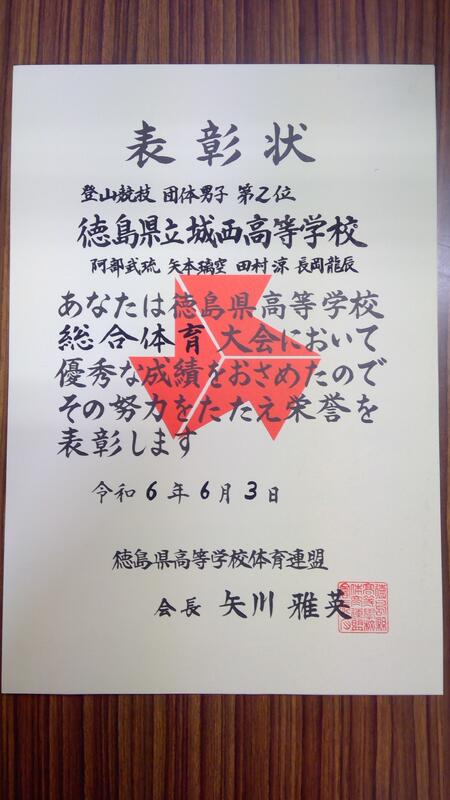 表彰状
登山競技 団体男子 第2位
徳島県立城西高等学校
阿部武琉 矢本璃空 田村涼 長岡龍辰
あなたは徳島県高等学校
総合体育大会において
優秀な成績をおさめたので
その努力をたたえ栄誉を
表彰します
令和6年6月3日
徳島県高等学校体育連盟
会長 矢川 雅英